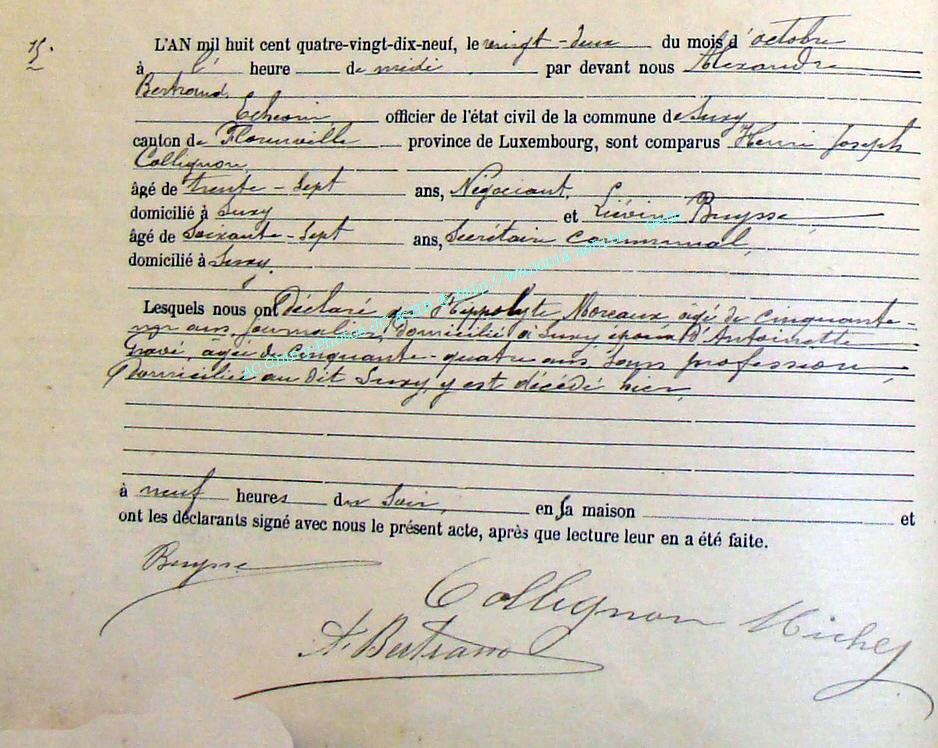 L'AN mil huit cent quatre-vingt-dix-neuf, le vingt-deux du mois d'octobre
à l' heure de midi par devant nous Alexandre
Bertrand
Echevin officier de l'état civil de la commune de Suxy
canton de Florenville province de Luxembourg, sont comparus Henri Joseph
Collignon
âgé de trente-sept ans, Négociant,
domicilié à Suxy et Liévin Buysse
âgé de soixante-sept ans, Secrétaire communal,
domicilié à Suxy,
Lesquels nous ont déclaré que Hippolyte Moreaux âgé de cinquante-
ans, journalier, domicilié à Suxy époux d'Antoinette
âgée de cinquante-quatre ans, sans profession,
domiciliée au dit Suxy, y est décédé hier,
à neuf heures du soir, en sa maison et
ont les déclarants signé avec nous le présent acte, après que lecture leur en a été faite.
Buysse
Collignon Michel
A. Bertrand